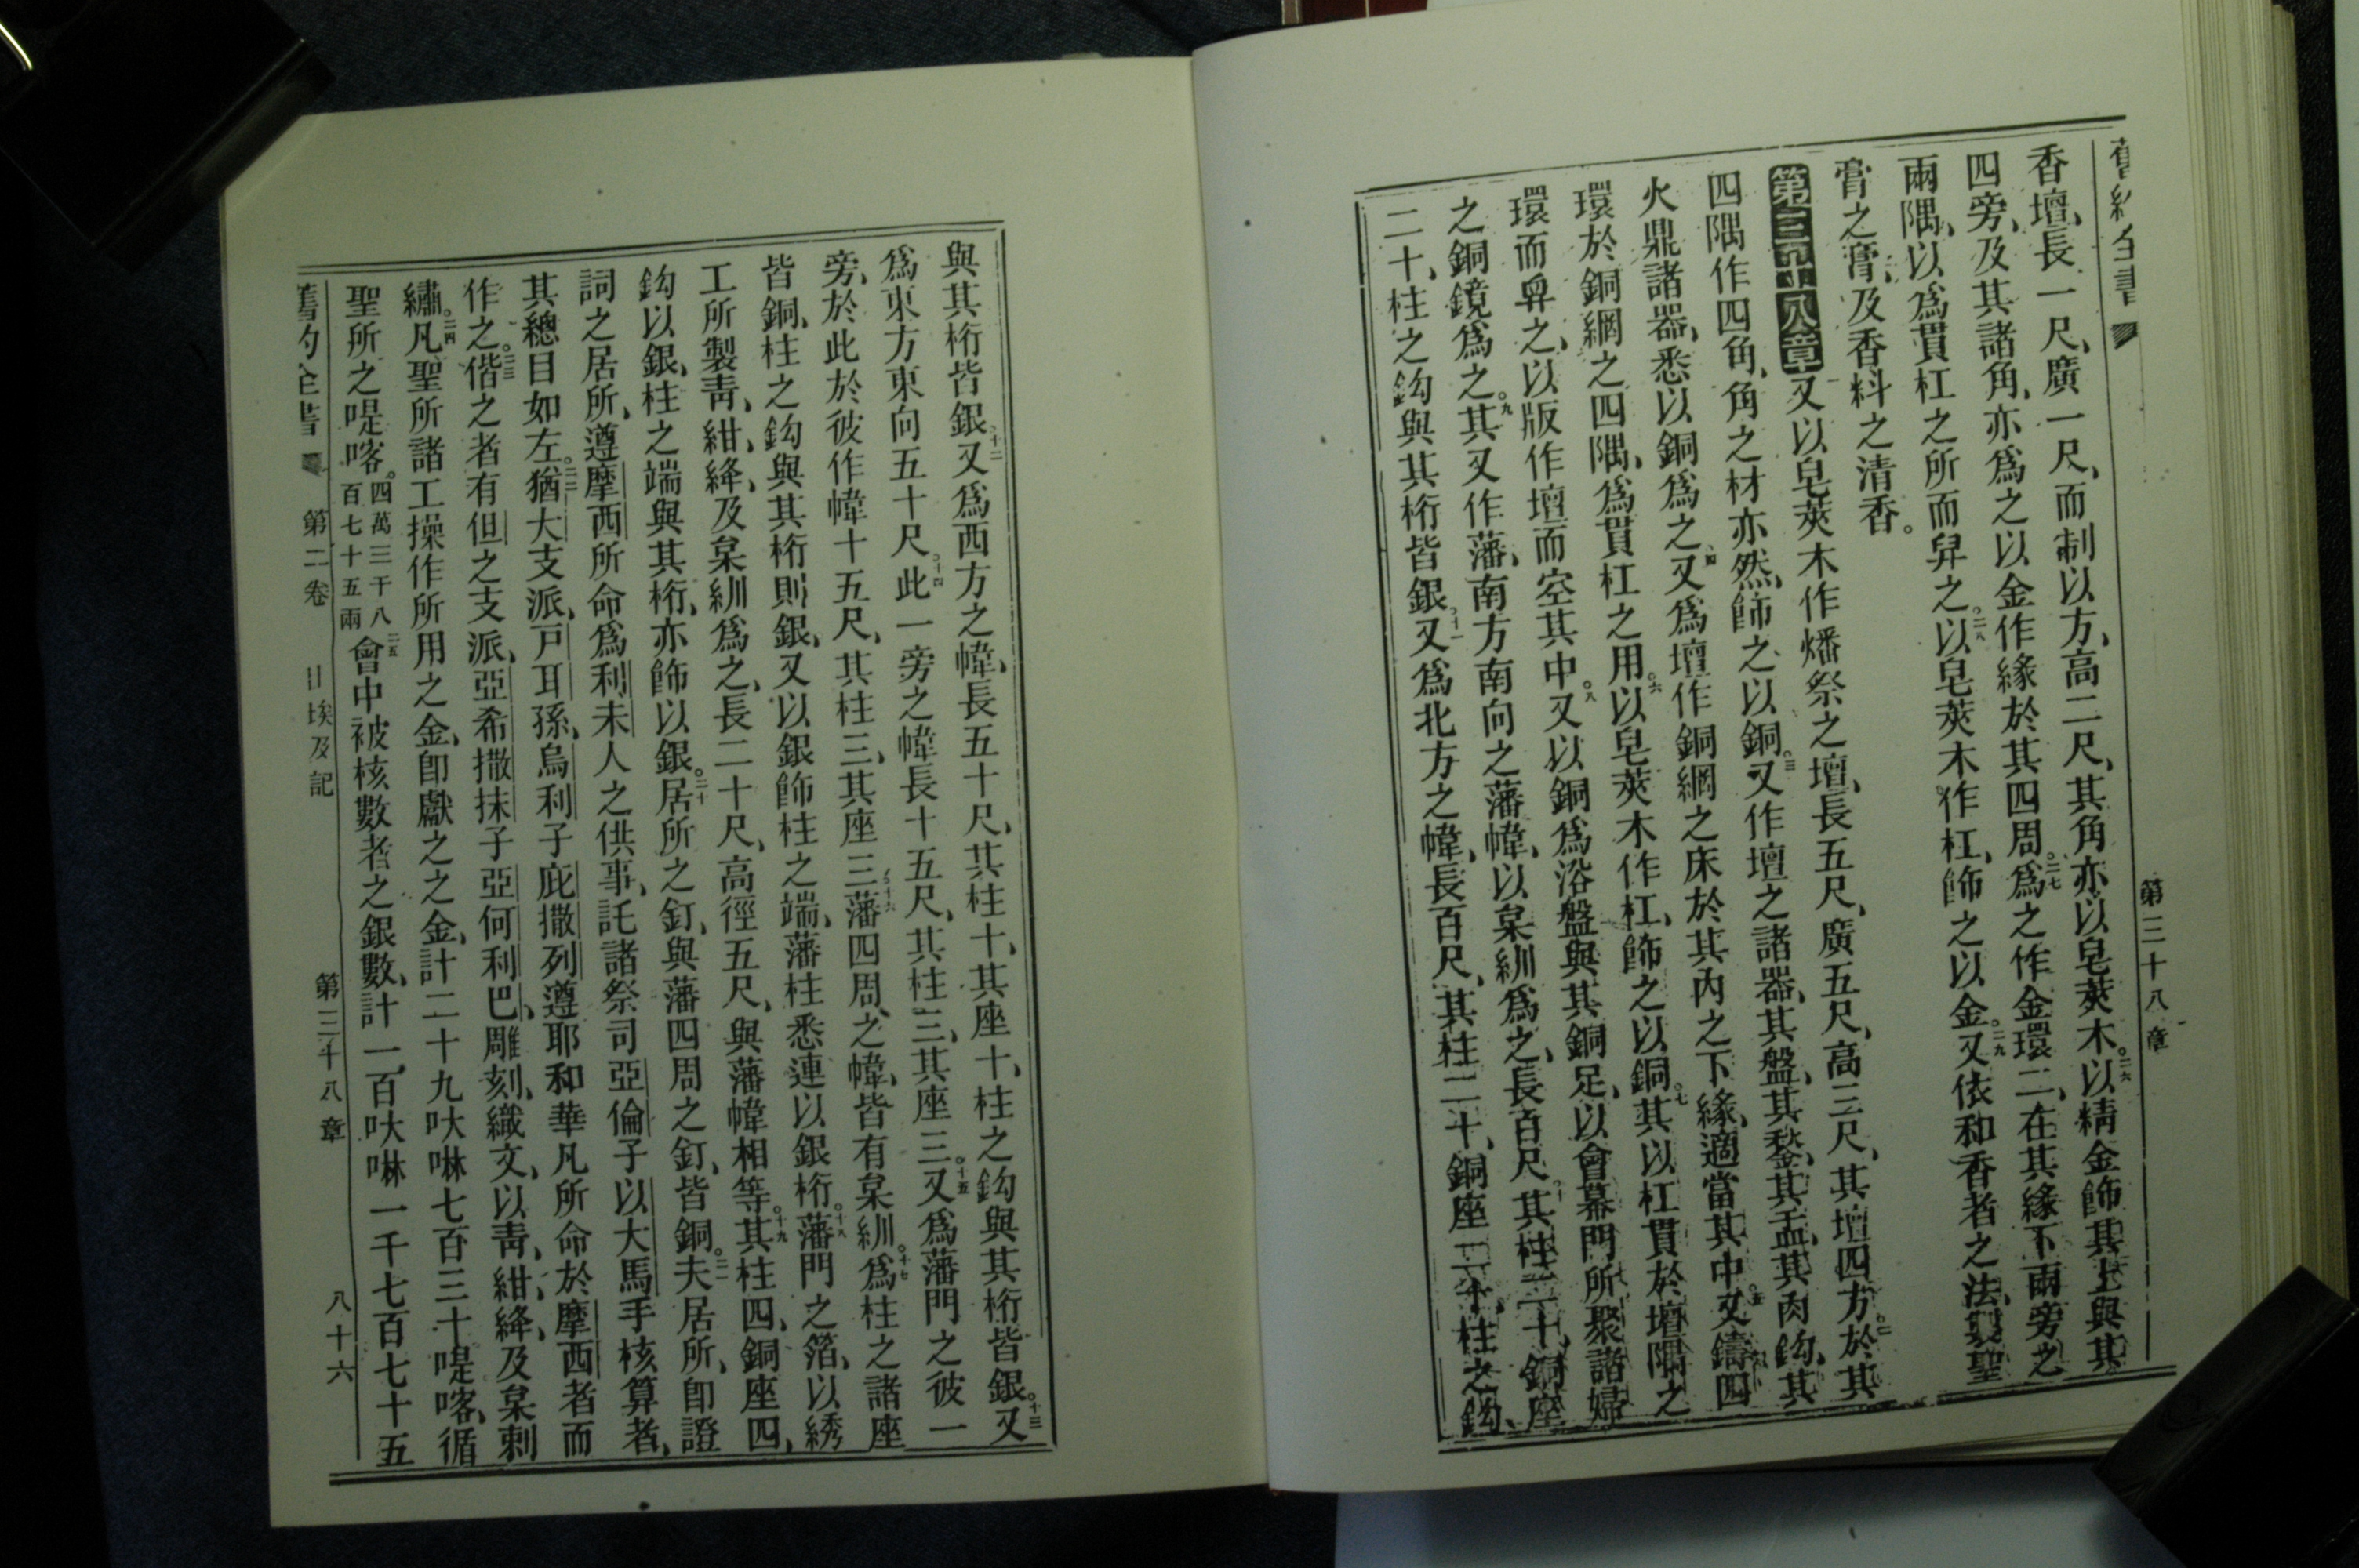 舊約全書 第三十八章
香壇、長一尺、廣一尺、而制以方、高二尺、其角亦以皂莢木。二六以精金飾其上與其
四旁、及其諸角、亦爲之以金作緣於其四周。二七爲之作金環二、在其緣下兩旁之
兩隅、以爲貫杠之所而舁之。二八以皂莢木作杠、飾之以金。二九又依和香者之法、製聖
膏之膏、及香料之清香。
第三十八章又以皂莢木作燔祭之壇、長五尺、廣五尺、高三尺、其壇四方。二於其
四隅作四角、角之材亦然、飾之以銅。三又作壇之諸器、其盤、其鍫、其盂、其肉鈎、其
火鼎諸器、悉以銅爲之、四又爲壇作銅網之床於其內之下緣、適當其中。五又鑄四
環於銅網之四隅、爲貫杠之用。六以皂莢木作杠、飾之以銅。七其以杠貫於壇隅之
環而舁之、以版作壇而空其中。八又以銅爲浴盤與其銅足、以會幕門所聚諸婦
之銅鏡爲之。九其又作藩、南方南向之藩幃、以枲紃爲之、長百尺。十其柱二十、銅座
二十、柱之鈎與其桁皆銀。十一又爲北方之幃、長百尺、其柱二十、銅座二十、柱之鈎、
與其桁皆銀、十二又爲西方之幃、長五十尺、其柱十、其座十、柱之鈎與其桁皆銀。十三又
爲東方東向五十尺。十四此一旁之幃長十五尺、其柱三、其座三。十五又爲藩門之彼一
旁、於此於彼作幃十五尺、其柱三、其座三。十六藩四周之幃、皆有枲紃。十七爲柱之諸座
皆銅、柱之鈎與其桁則銀、又以銀飾柱之端、藩柱悉連以銀桁。十八藩門之箔、以綉
工所製青、紺、絳、及枲紃爲之、長二十尺、高徑五尺、與藩幃相等。十九其柱四、銅座四、
鈎以銀、柱之端與其桁、亦飾以銀。二十居所之釘、與藩四周之釘、皆銅。二一夫居所、卽證
詞之居所、遵摩西所命爲利未人之供事、託諸祭司亞倫子以大馬手核算者、
其總目如左。二二猶大支派、戶耳孫、烏利子庇撒列遵耶和華凡所命於摩西者而
作之。二三偕之者有但之支派、亞希撒抹子亞何利巴、雕刻、織文、以青、紺、絳、及枲刺
繡。二四凡聖所諸工操作所用之金、卽獻之之金、計二十九呔啉七百三十㖷喀、循
聖所之㖷喀。四萬三千八百七十五兩二五會中被核數者之銀數、計一百呔啉一千七百七十五
舊約全書 第二卷 出埃及記 第三十八章 八十六